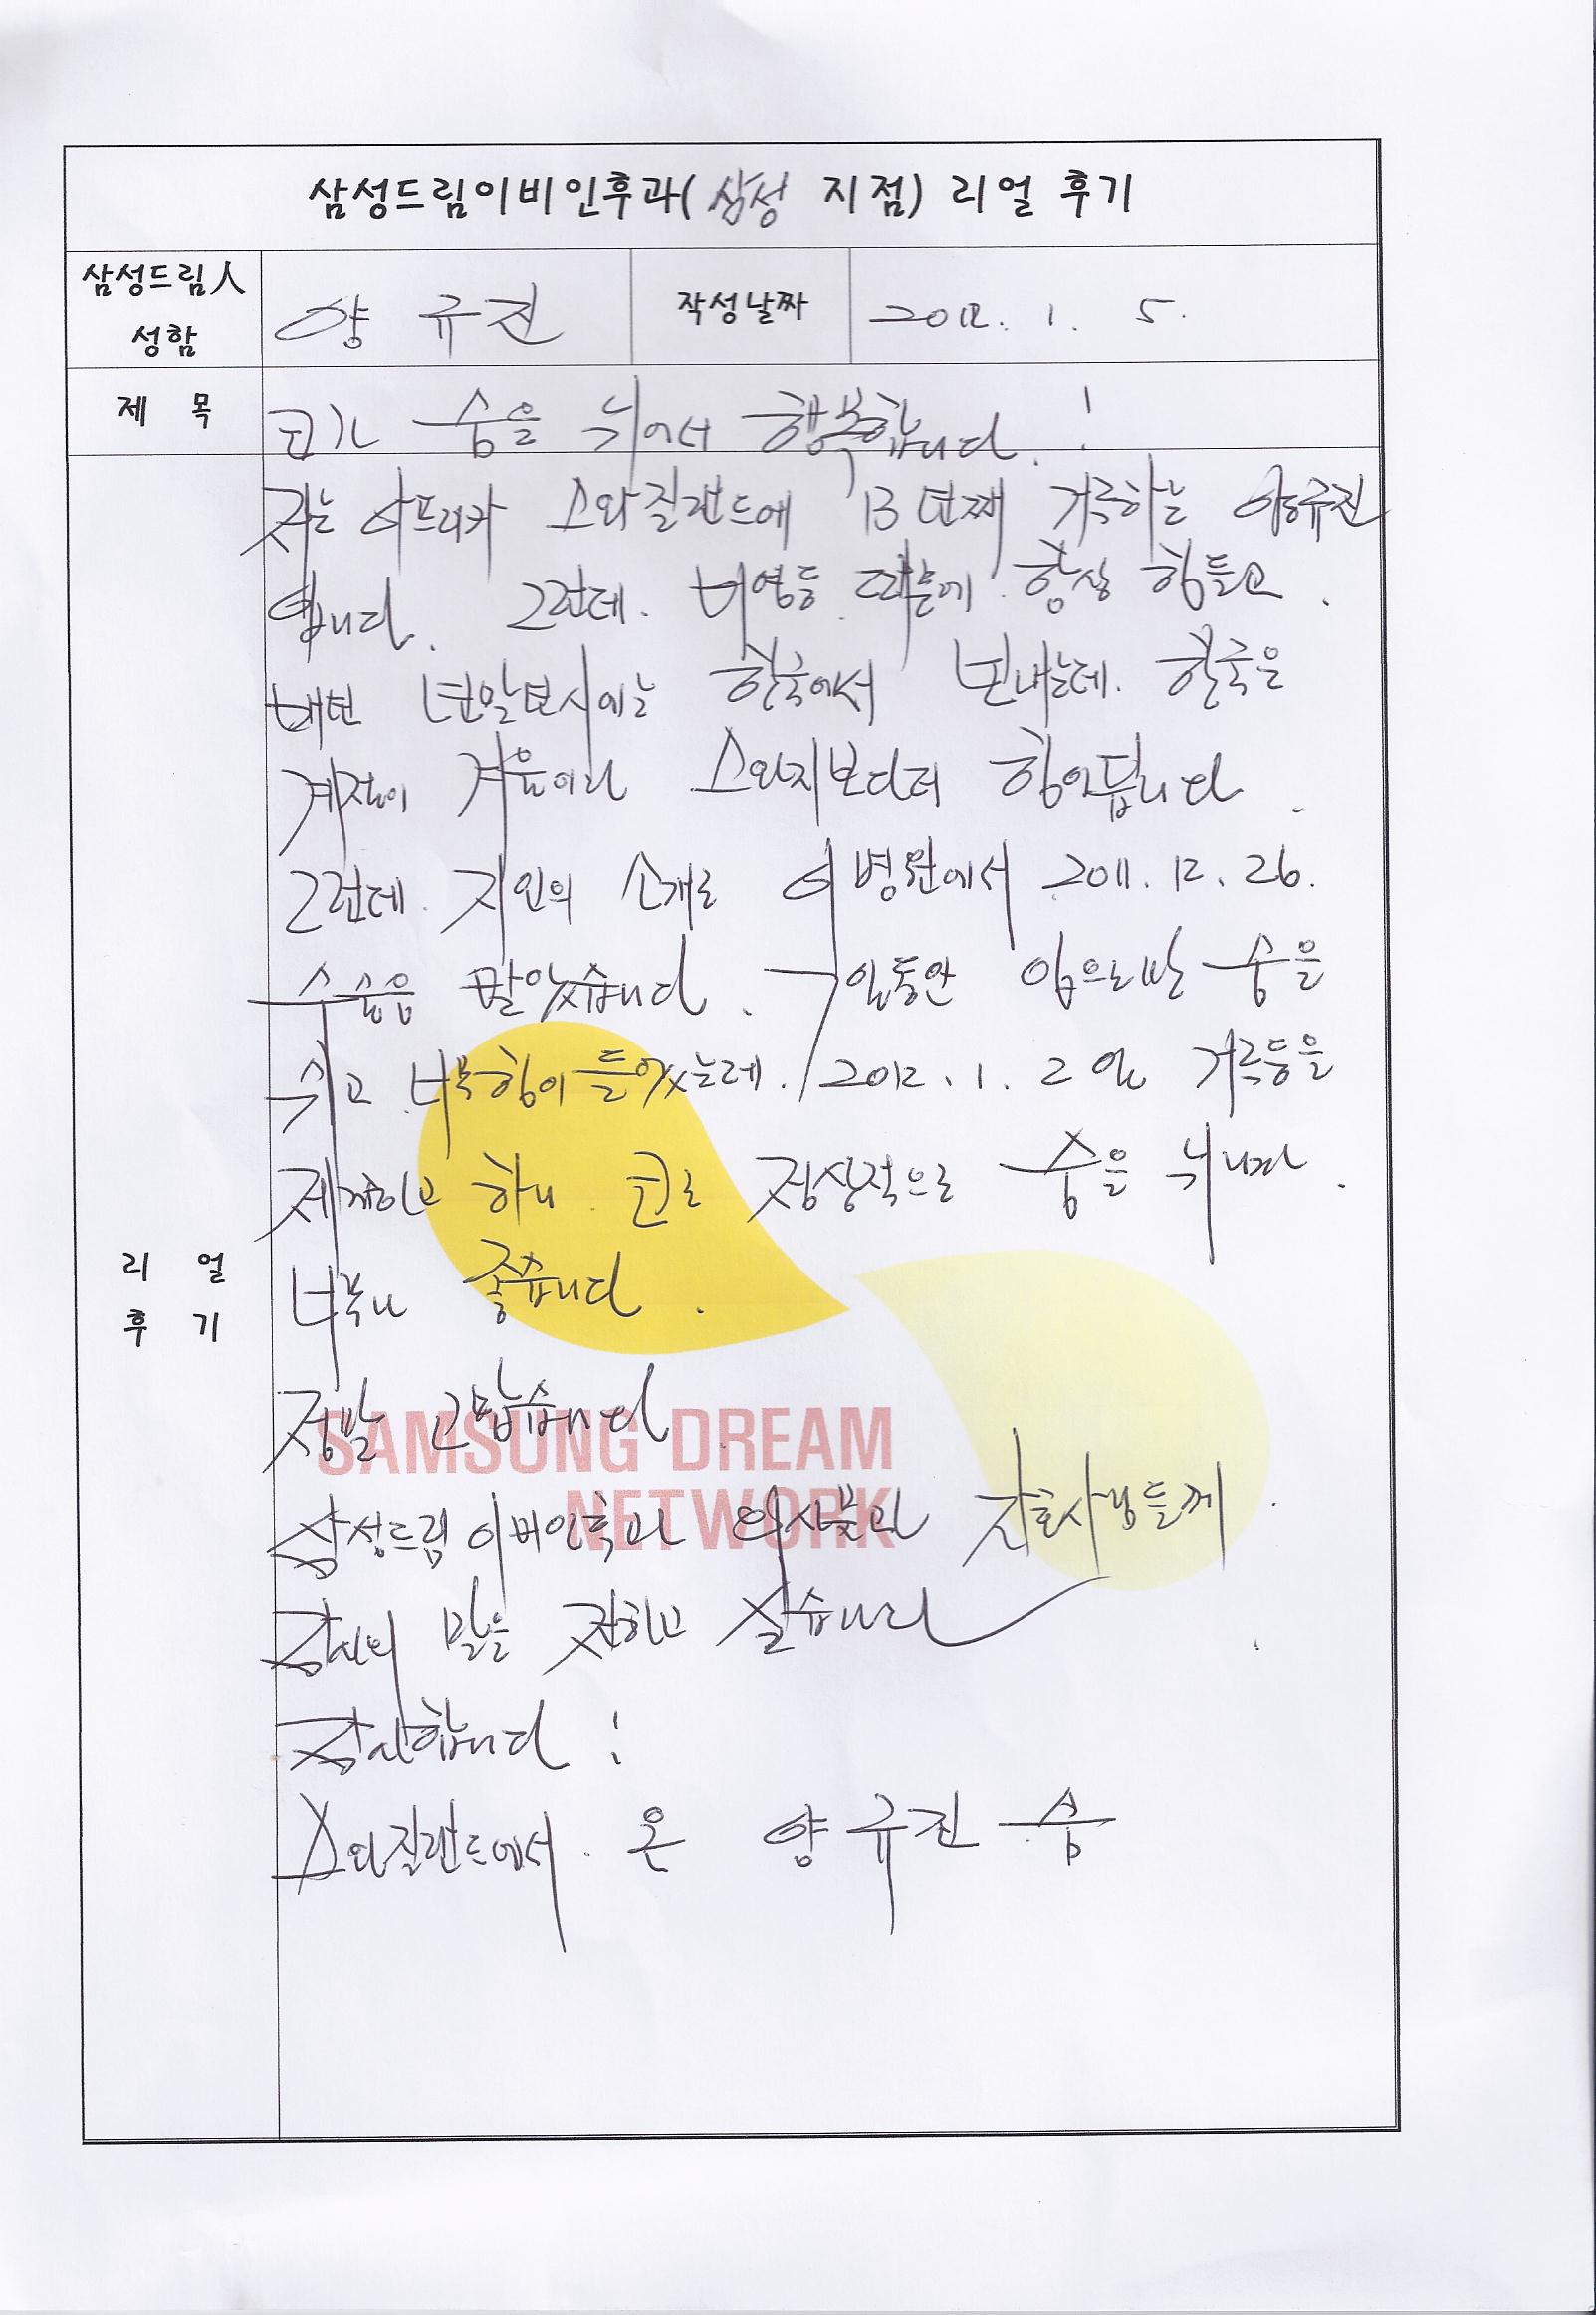 삼성드림이비인후과(삼성 지점) 리얼 후기
삼성드림人
성함
양 규진
작성날짜
2012. 1. 5.
제 목
코가 숨을 쉬어서 행복합니다. !
저는 아프리카 스와질랜드에 13년째 거주하는 양규진
입니다. 그런데. 비염등 때문에 항상 힘들고.
매번 년말년시에는 한국에서 보내는데. 한국은
계절이 겨울이라 스와지보다더 힘이듭니다.
그런데. 지인의 소개로 이 병원에서 2011. 12. 26.
수술을 받았습니다. 7일동안 입으로만 숨을
쉬고 너무 힘이 들었는데. 2012. 1. 2일 거즈등을
제거하고 하니 코로 정상적으로 숨을 쉬니까.
너무나 좋습니다.
정말 고맙습니다
SAMSUNG DREAM
NETWORK
삼성드림 이비인후과 의사분과 간호사님들께.
감사의 말을 전하고 싶습니다.
리 얼
후 기
감사합니다!
스와질랜드에서. 온 양규진